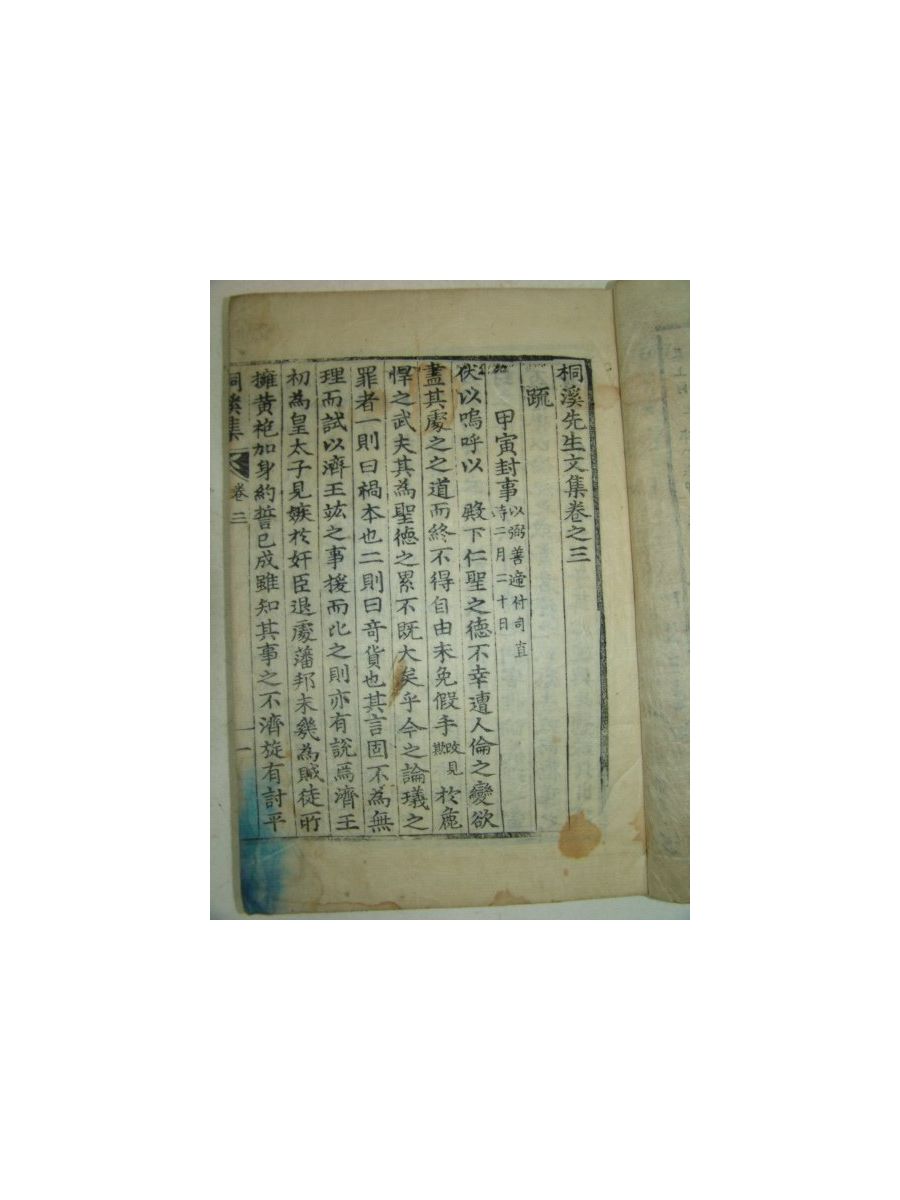 桐溪先生文集卷之三
疏
甲寅封事 以弼善遞付司直
時二月二十日
伏以嗚呼以 殿下仁聖之德不幸遭人倫之變欲
盡其處之之道而終不得自由未免假手 改見
欺 於麁
悍之武夫其爲聖德之累不既大矣乎今之論㼁之
罪者一則曰禍本也二則曰奇貨也其言固不爲無
理而試以濟王竑之事援而比之則亦有說焉濟王
初爲皇太子見嫉於奸臣退處藩邦未幾爲賊徒所
擁黃袍加身約誓已成雖知其事之不濟旋有討平
桐溪集 卷三 一